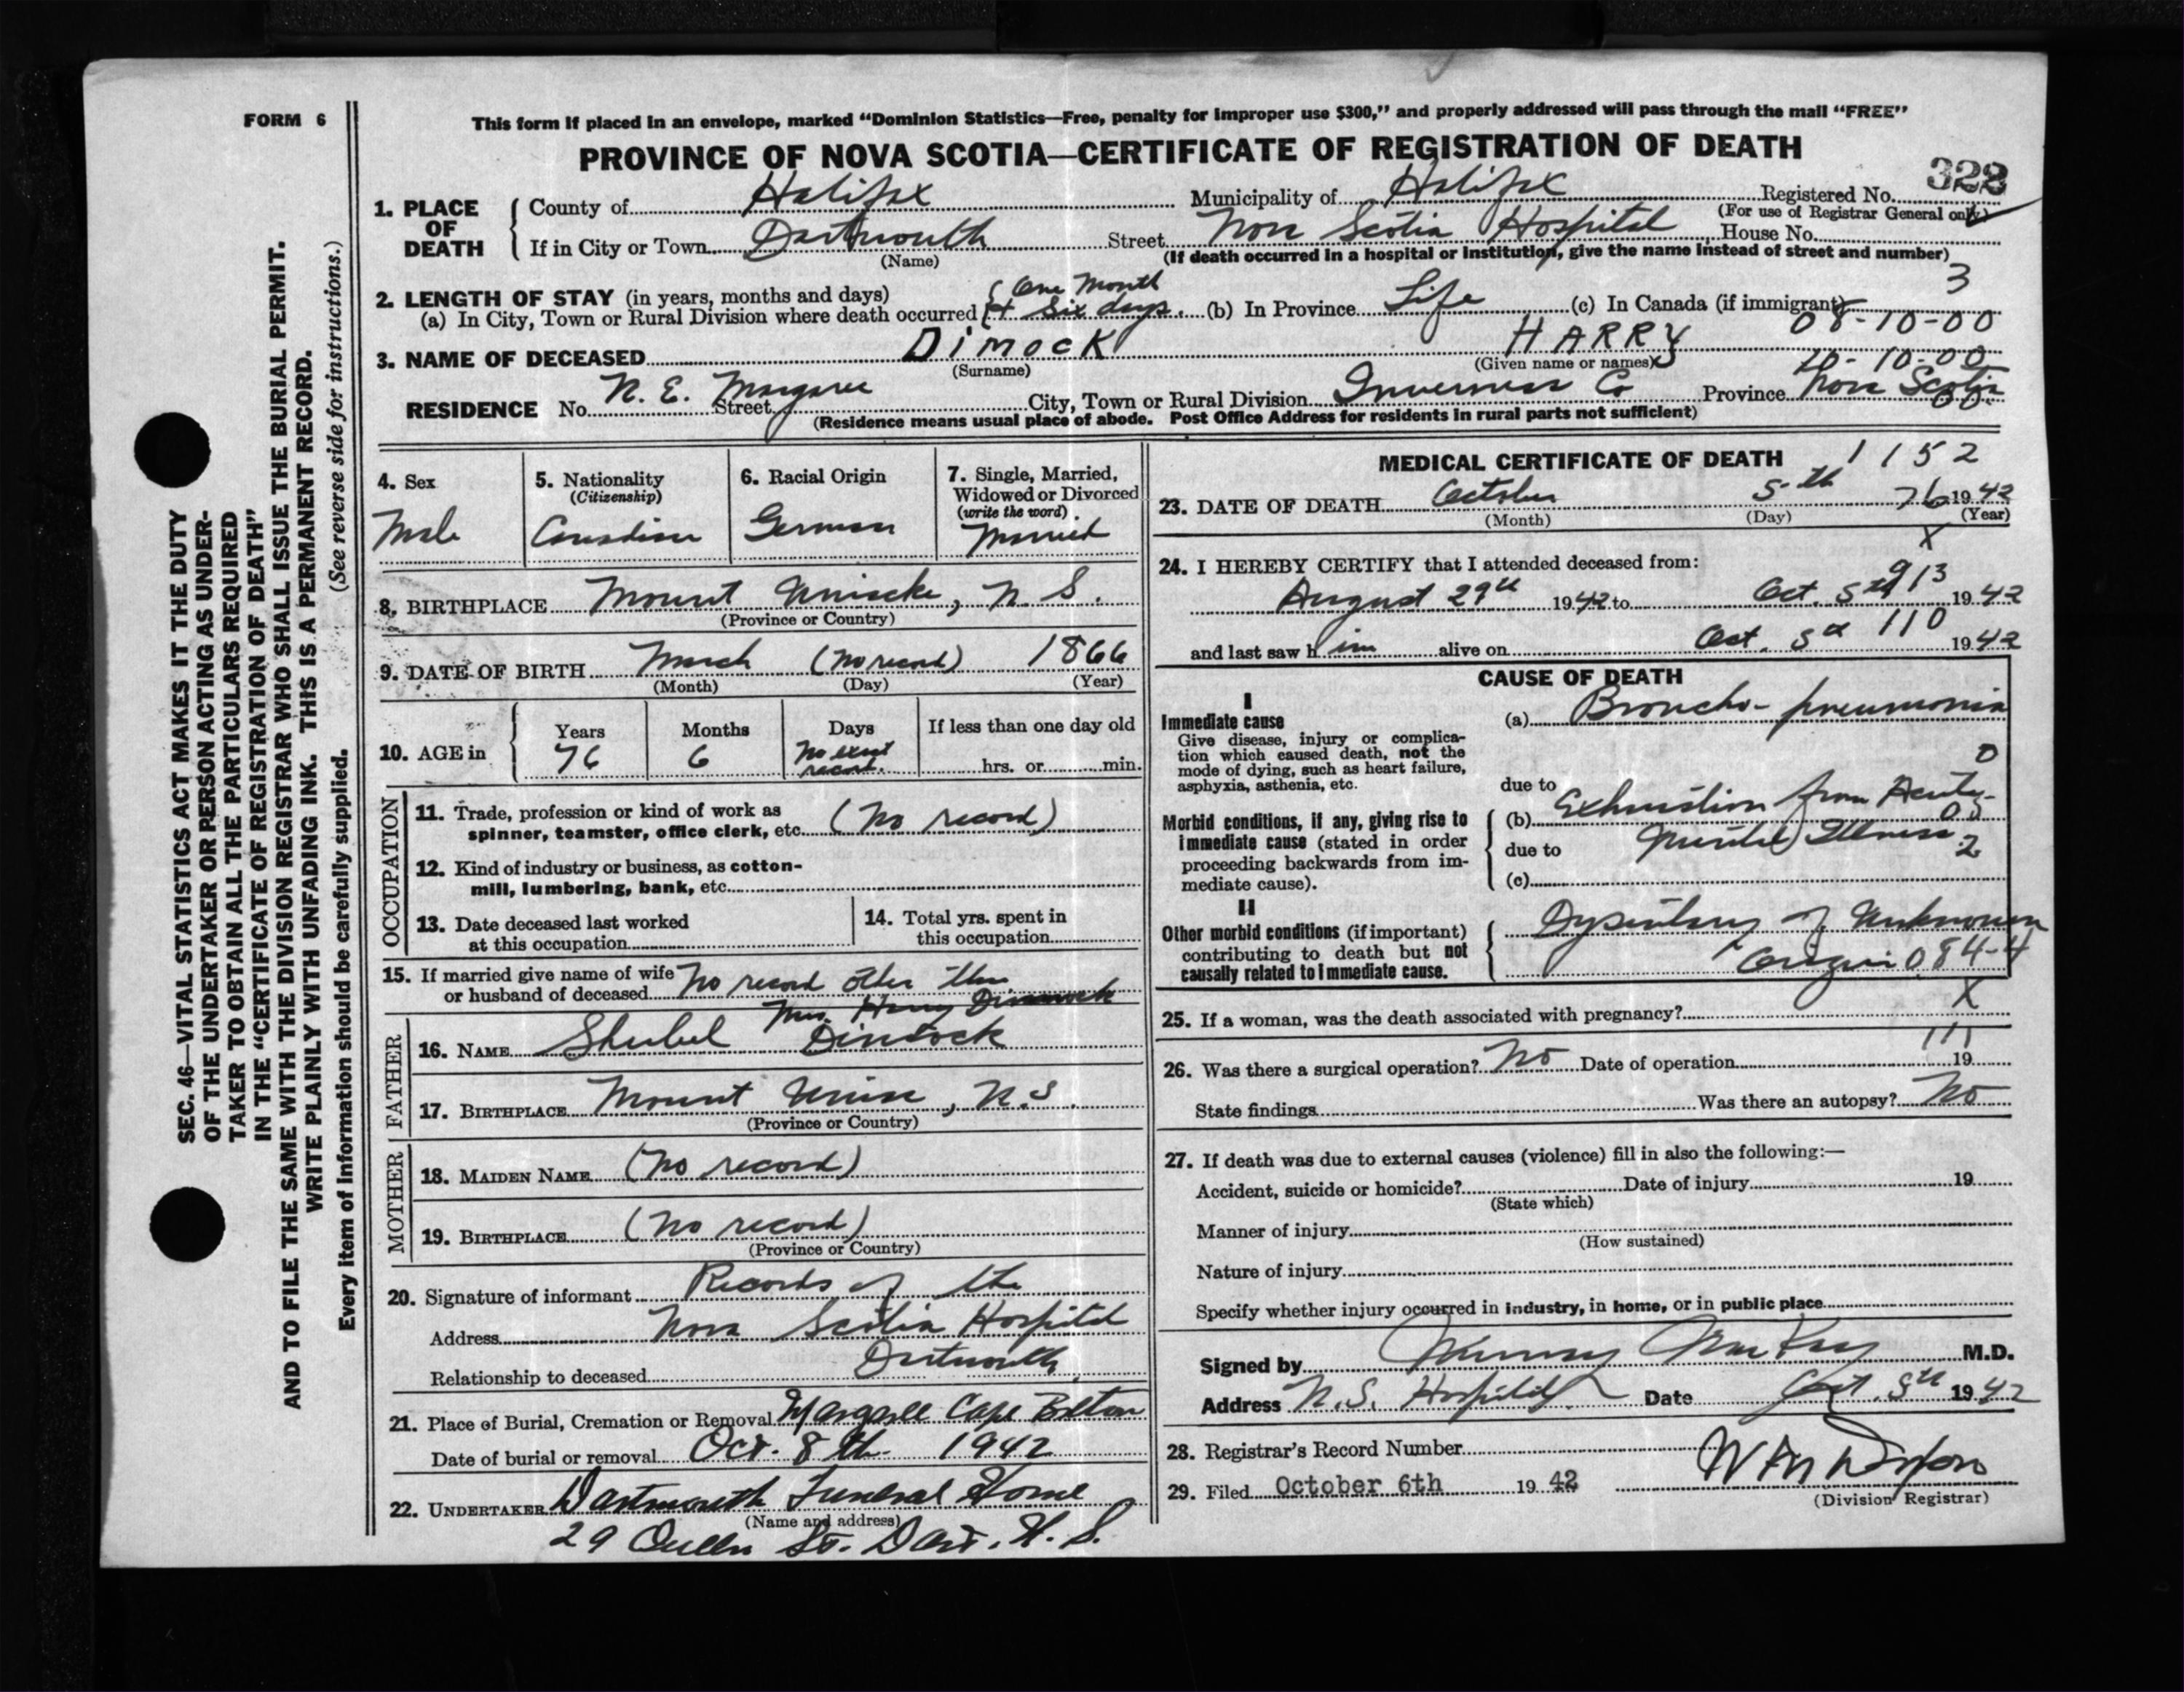 FORM 6
This form if placed in an envelope, marked "Dominion Statistics—Free, penalty for improper use $300," and properly addressed will pass through the mail "FREE"
PROVINCE OF NOVA SCOTIA—CERTIFICATE OF REGISTRATION OF DEATH
1. PLACE OF DEATH County of Halifax Municipality of Halifax Registered No. 328
(For use of Registrar General only)
If in City or Town Dartmouth Street Nova Scotia Hospital House No.
(Name) (If death occurred in a hospital or institution, give the name instead of street and number)
2. LENGTH OF STAY (in years, months and days) One Month 3
(a) In City, Town or Rural Division where death occurred + Six days. (b) In Province Life (c) In Canada (if immigrant)
08-10-00
3. NAME OF DECEASED Dimock HARRY
(Surname) (Given name or names)
10-00
RESIDENCE No. N. E. Margaree Street City, Town or Rural Division Inverness Co Province Nova Scotia
(Residence means usual place of abode. Post Office Address for residents in rural parts not sufficient)
4. Sex 5. Nationality 6. Racial Origin 7. Single, Married,
(Citizenship) Widowed or Divorced
(write the word)
Male Canadian German Married
8. BIRTHPLACE Mount Uniacke, N. S.
(Province or Country)
9. DATE OF BIRTH March (No record) 1866
(Month) (Day) (Year)
10. AGE in Years Months Days If less than one day old
76 6 No exact record. hrs. or min.
OCCUPATION
11. Trade, profession or kind of work as
spinner, teamster, office clerk, etc. (No record)
12. Kind of industry or business, as cotton-
mill, lumbering, bank, etc.
13. Date deceased last worked
at this occupation
14. Total yrs. spent in
this occupation
15. If married give name of wife No record other than
or husband of deceased Mrs. Harry Dimock
FATHER
16. NAME Shubel Dimock
17. BIRTHPLACE Mount , N.S.
(Province or Country)
MOTHER
18. MAIDEN NAME (No record)
19. BIRTHPLACE (No record)
(Province or Country)
20. Signature of informant Records of the
Address Nova Scotia Hospital
Relationship to deceased Dartmouth
21. Place of Burial, Cremation or Removal Margaree Cape Breton
Date of burial or removal Oct. 8th. 1942
22. UNDERTAKER Dartmouth Funeral Home
(Name and address)
29 Queen St. Dart. N. S.
MEDICAL CERTIFICATE OF DEATH 1152
23. DATE OF DEATH October 5th 76 1942
(Month) (Day) (Year)
X
24. I HEREBY CERTIFY that I attended deceased from:
913
August 29th 1942 to Oct. 5th 1942
110
and last saw him alive on Oct. 5th 1942
CAUSE OF DEATH
I
Immediate cause (a) Broncho-pneumonia
Give disease, injury or complica-
tion which caused death, not the
mode of dying, such as heart failure,
asphyxia, asthenia, etc.
0
due to
Morbid conditions, if any, giving rise to
immediate cause (stated in order
proceeding backwards from im-
mediate cause).
(b) Exhaustion from Acute
due to Mental Illness
2
(c)
II
Other morbid conditions (if important)
contributing to death but not
causally related to immediate cause.
Dysentery of Unknown
Origin 084-4
X
25. If a woman, was the death associated with pregnancy?
111
26. Was there a surgical operation? No Date of operation 19
State findings Was there an autopsy? No
27. If death was due to external causes (violence) fill in also the following:—
Accident, suicide or homicide? Date of injury 19
(State which)
Manner of injury
(How sustained)
Nature of injury
Specify whether injury occurred in industry, in home, or in public place
Signed by Murray MacKay M.D.
Address N.S. Hospital Date Oct. 5th 1942
28. Registrar's Record Number
29. Filed October 6th 1942
(Division Registrar)
SEC. 46—VITAL STATISTICS ACT MAKES IT THE DUTY
OF THE UNDERTAKER OR PERSON ACTING AS UNDER-
TAKER TO OBTAIN ALL THE PARTICULARS REQUIRED
IN THE "CERTIFICATE OF REGISTRATION OF DEATH"
AND TO FILE THE SAME WITH THE DIVISION REGISTRAR WHO SHALL ISSUE THE BURIAL PERMIT.
WRITE PLAINLY WITH UNFADING INK. THIS IS A PERMANENT RECORD.
Every item of information should be carefully supplied. (See reverse side for instructions.)